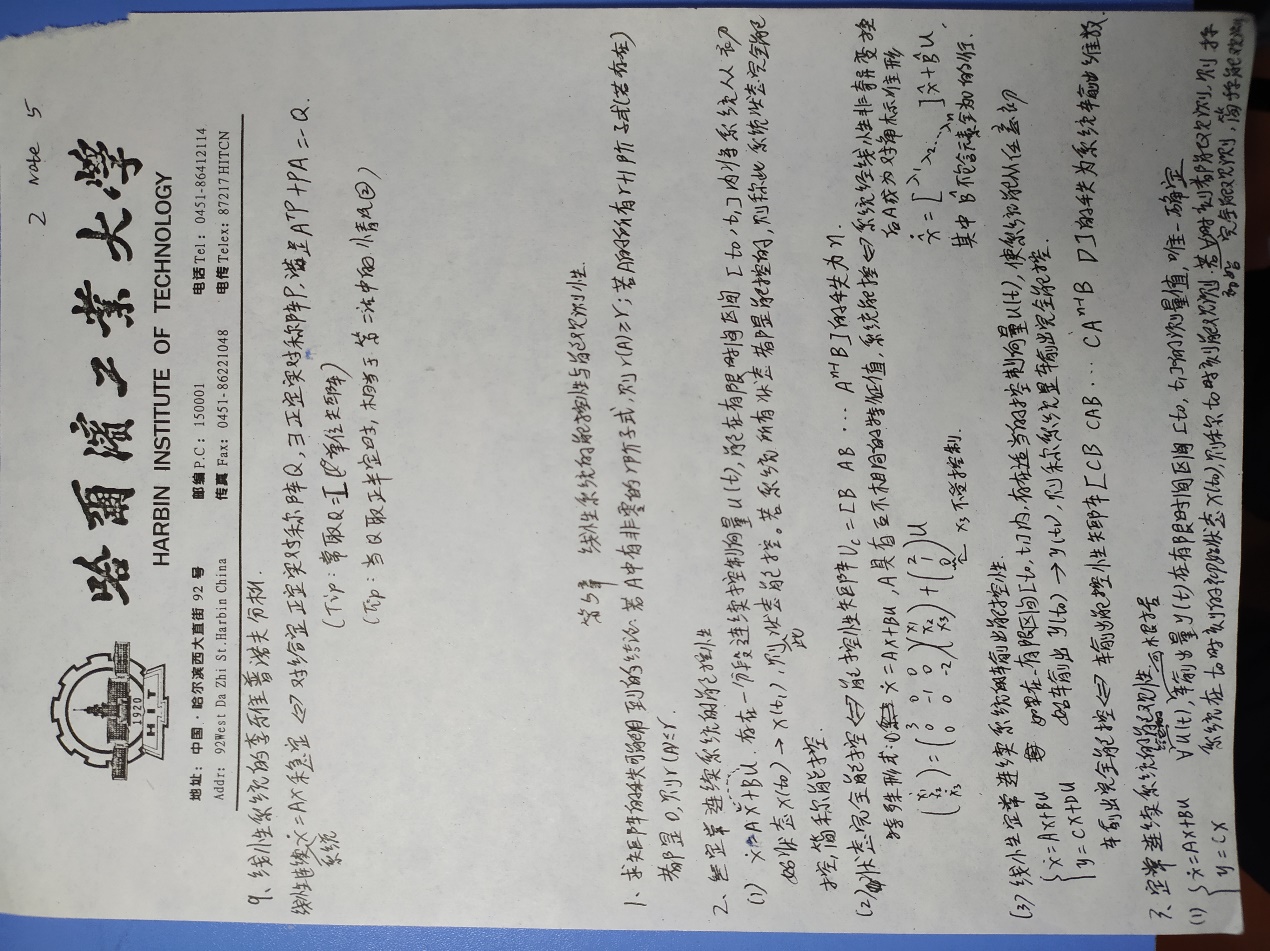 2 Note 5
1920
HIT
哈爾濱工業大學
HARBIN INSTITUTE OF TECHNOLOGY
地址：中国·哈尔滨西大直街 92 号 邮编 P.C：150001 电话 Tel：0451-86412114
Addr：92West Da Zhi St.Harbin China 传真 Fax：0451-86221048 电传 Telex：87217 HITCN
9、线性系统的李雅普诺夫分析.
线性连续系统 ẋ=AX 稳定 ⇔ 对给定正定实对称阵Q, ∃正定实对称阵P, 满足AᵀP+PA=-Q.
(Tip：常取Q=I 单位矩阵)
(Tip：当Q取正半定时, 相当于第二法中的情况②)
第5章 线性系统的能控性与能观测性.
1、求矩阵的秩可能用到的结论：若A中有非零的r阶子式, 则r(A)≥r；若A的所有r+1阶子式(若存在)
都是0, 则r(A)≤r.
2、定常连续系统的能控性
(1) ẋ=AX+BU. 存在一分段连续控制向量U(t), 能在有限时间区间[t₀,t₁]内将系统从初
始状态X(t₀)→X(t₁), 则此状态能控。若系统所有状态都是能控的, 则称此系统状态完全能
控, 简称能控.
(2) 状态完全能控⇔能控性矩阵U_C=[B AB ⋯ Aⁿ⁻¹B]的秩为n.
特殊形式：① ẋ=AX+BU, A具有互不相同的特征值, 系统能控⇔系统经线性非奇异变换
后A成为对角标准形
(ẋ₁ ẋ₂ ẋ₃)=(3 0 0 0 -1 0 0 0 -2)(x₁ x₂ x₃)+(2 1 0)U
x₃不受控制.
x̂̇=[λ₁ λ₂ ⋱ λₙ]x̂+B̂U,
其中B̂不包含元素全为0的行.
(3) 线性定常连续系统的输出能控性.
{ẋ=AX+BU 如果在一有限区间[t₀,t₁]内, 存在适当的控制向量U(t), 使系统能从任意初
y=CX+DU 始输出y(t₀)→y(t₁), 则称系统是输出完全能控.
输出完全能控⇔输出能控性矩阵[CB CAB ⋯ CAⁿ⁻¹B D]的秩为系统输出维数.
3、定常连续系统的能观性. 可根据
(1) {ẋ=AX+BU 给定的∀U(t), 输出量y(t)在有限时间区间[t₀,t₁]的测量值, 唯一确定
y=CX 系统在t₀时刻的初始状态X(t₀), 则称t₀时刻能观测. 若∀时刻都能观测, 则称
初始 完全能观测, 简称能观测